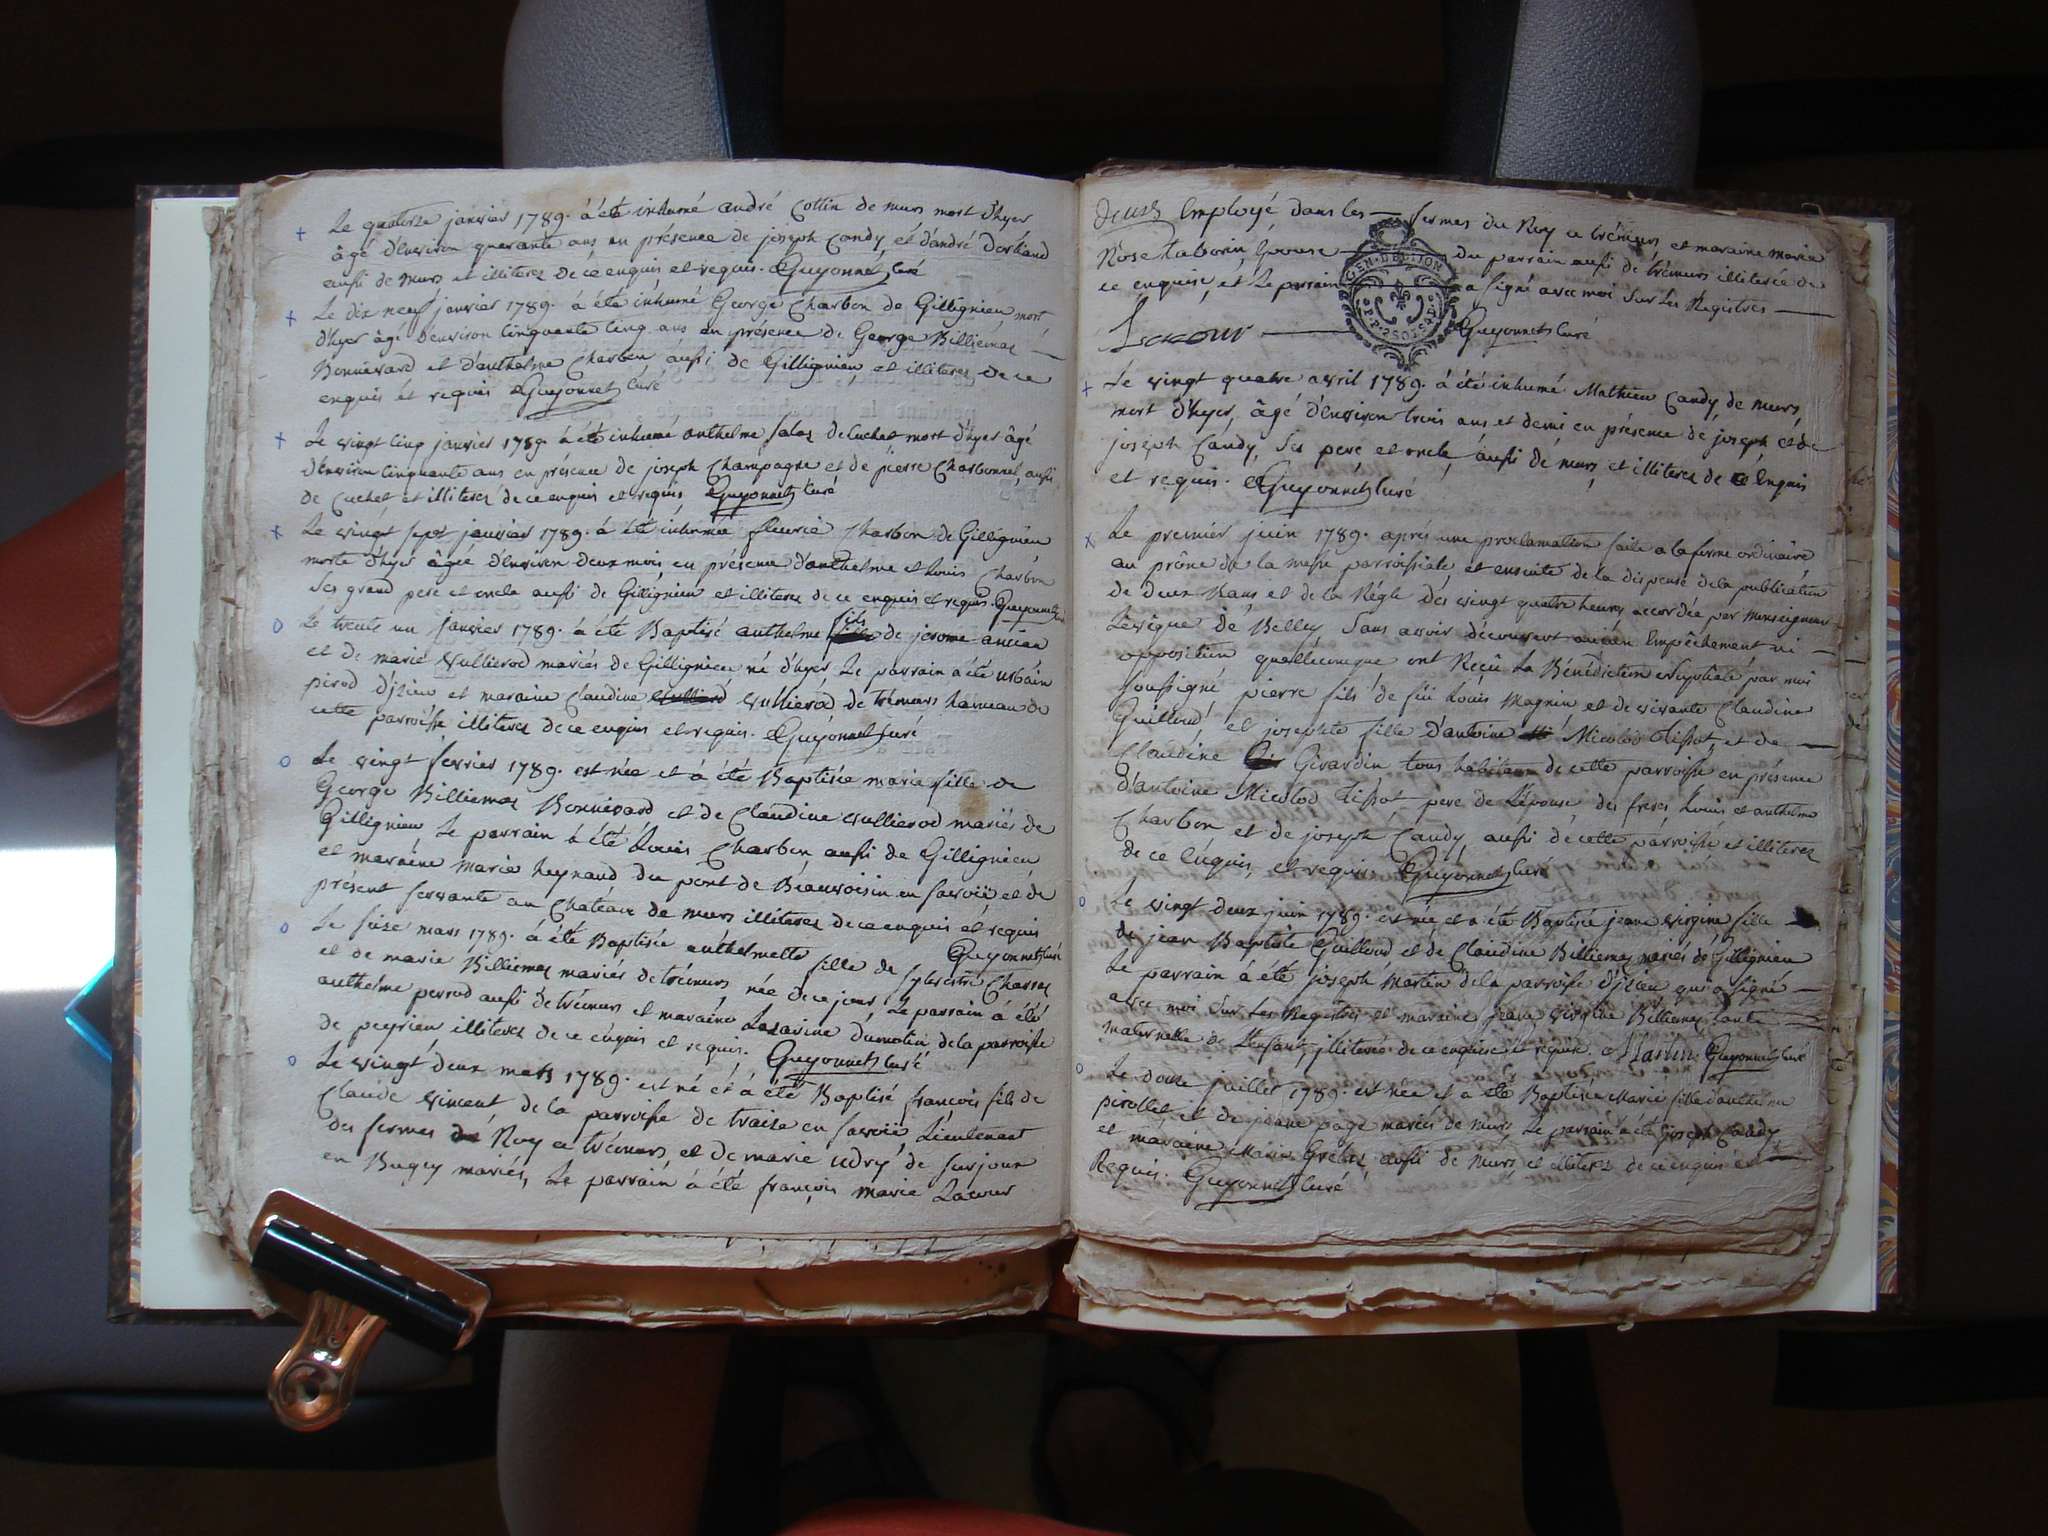 Le quatorze janvier 1789. à été inhumé andré Cottin de murs mort d'hyer
âgé d'Environ quarante ans en présence de joseph Candy, et d'andré
aussi de murs et illiterez de ce enquis et requis. Guyonnet Curé
Le dix neuf janvier 1789. à été inhumé George Charbon de Gillignieu mort
d'hyer âgé d'environ Cinquante Cinq ans en présence de George Billiemaz
Bonnevard et d'anthelme Charbon aussi de Gillignieu, et illiterez de ce
enquis et requis Guyonnet Curé
Le vingt Cinq janvier 1789. à été inhumé anthelme de Cuchet mort d'hyer âgé
d'Environ Cinquante ans en présence de joseph Champagne et de pierre Charbonnel, aussi
de Cuchet et illiterez de ce enquis et requis Guyonnet Curé
Le vingt sept janvier 1789. à été inhumée fleurie Charbon de Gillignieu
morte d'hyer âgée d'Environ deux mois en présence d'anthelme et Louis Charbon
Ses grand pere et oncle aussi de Gillignieu et illiterez de ce enquis et requis. Guyonnet Curé
Le trente un janvier 1789. à été Baptisé anthelme fils de jerome
et de marie Vullierod mariés de Gillignieu né d'hyer, Le parrain à été urbain
pirod d'jzieu et maraine Claudine Vullierod de trémurs hameau de
cette parroisse illiterez de ce enquis et requis. Guyonnet Curé
Le vingt fevrier 1789. est née et à été Baptisée marie fille de
George Billiemaz Bonnevard et de Claudine Vullierod mariés de
Gillignieu Le parrain à été Louis Charbon aussi de Gillignieu
et maraine marie Reynaud du pont de Beauvoisin en savoïe et de
présent servante au Château de murs illiterez de ce enquis et requis
Guyonnet Curé
Le mars 1789. à été Baptisée anthelmette fille de Sylvestre
et de marie Billiemaz mariés de trémurs née de ce jour, Le parrain à été
anthelme perrod aussi de trémurs et maraine Lazarine dumolin de la parroisse
de peyrieu illiterez de ce enquis et requis. Guyonnet Curé
Le vingt deux mars 1789. est né et à été Baptisé françois fils de
Claude vincent de la parroisse de traize en savoïe Lieutenant
des fermes du Roy à trémurs et de marie udry de surjoux
en Bugey mariés, Le parrain à été françois marie Lacour
Employé dans les fermes du Roy à trémurs, et maraine marie
Rose taborin Epouse du parrain aussi de trémurs illiterée de
ce enquise, et Le parrain a signé avec moi sur Les Registres
Lacour Guyonnet Curé
GEN. DE LYON
Le vingt quatre avril 1789. à été inhumé Mathieu Candy de murs,
mort d'hyer, âgé d'Environ trois ans et demi en présence de joseph et de
joseph Candy, Ses pere et oncle aussi de murs et illiterez de ce Enquis
et requis. Guyonnet Curé
Le premier juin 1789. après une proclamation faite a la forme ordinaire,
au prône de la messe parroissiale et ensuite de la dispense de la publication
de deux Bans et de la Régle des vingt quatre heures accordée par Monseigneur
L'evêque de Belley Sans avoir découvert aucun Empêchement ni
opposition quellconque ont Reçû La Bénédiction Nuptiale par moi
soussigné pierre fils de feu Louis Magnin et de vivante Claudine
Guilloud et josephte fille d'antoine Micolod tissot, et de
Claudine Girardin tous habitans de cette parroisse en présence
d'antoine Micolod tissot pere de L'épouse des freres Louis et anthelme
Charbon et de joseph Candy, aussi de cette parroisse et illiterez
de ce Enquis, et requis. Guyonnet Curé
Le vingt deux juin 1789. est née et a été Baptisée jeane virgine fille
de jean Baptiste Guilloud et de Claudine Billiemaz mariés de Gillignieu
Le parrain à été joseph Martin de la parroisse d'jzieu qui a signé
avec moi Sur Les Registres et maraine jeane virgine Billiemaz tante
maternelle de L'enfant, illiterée de ce enquise et requise. Martin Guyonnet Curé
Le douze juillet 1789. est née et a été Baptisée Marie fille d'anthelme
perollet et de jeane page mariés de murs Le parrain à été joseph Candy
et maraine Marie aussi de Murs et illiterez de ce enquis et
Requis. Guyonnet Curé